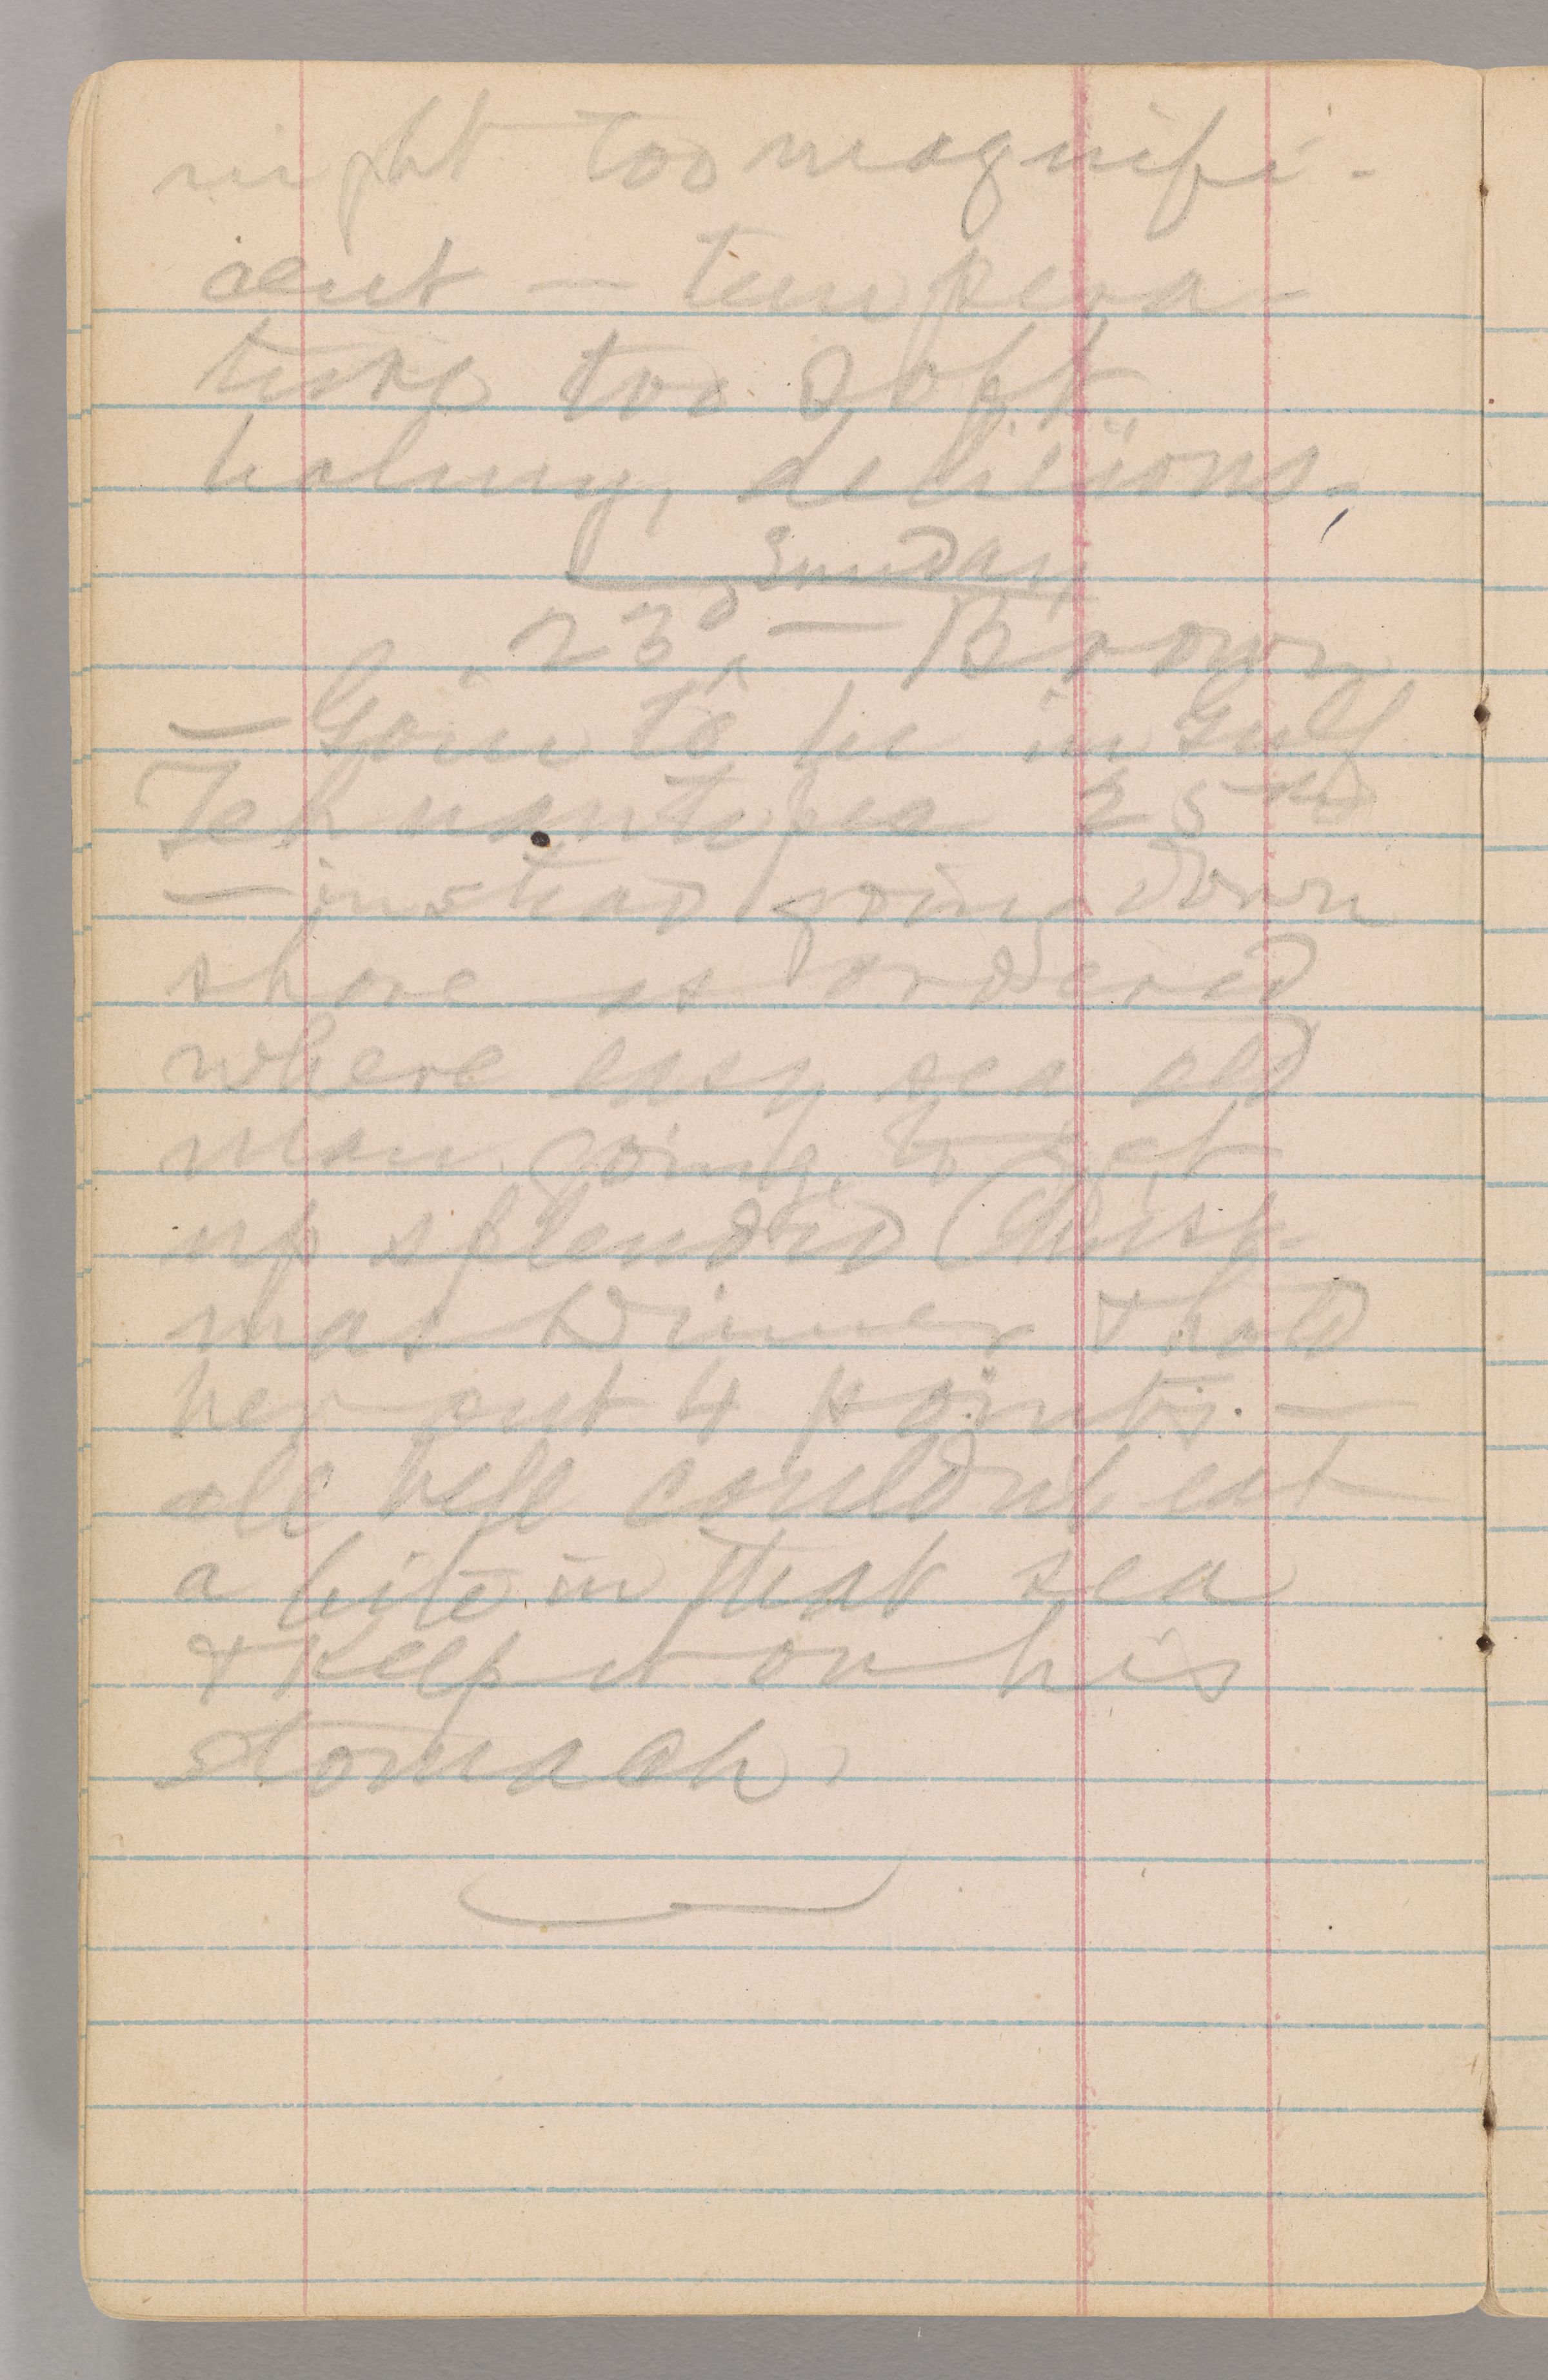 night too magnifi-
cent — tempera-
ture too soft
balmy, delicious.
Sunday
23d, — Brown
— Goin to be in Gulf
Tehuantepec 25th
— instead going down
shore as ordered
where easy sea old
man going to get
up splendid Christ-
mas Dinner & hold
her out 4 points —
all hell couldn't eat
a bite in that sea
& keep it on his
stomach.